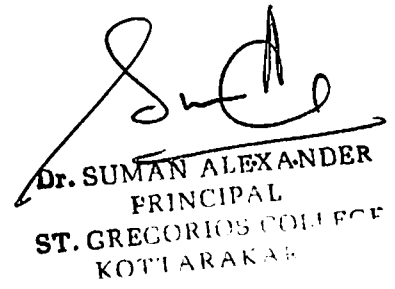 Dr. SUMAN ALEXANDER
PRINCIPAL
ST. GREGORIOS COLLEGE
KOTTARAKAR